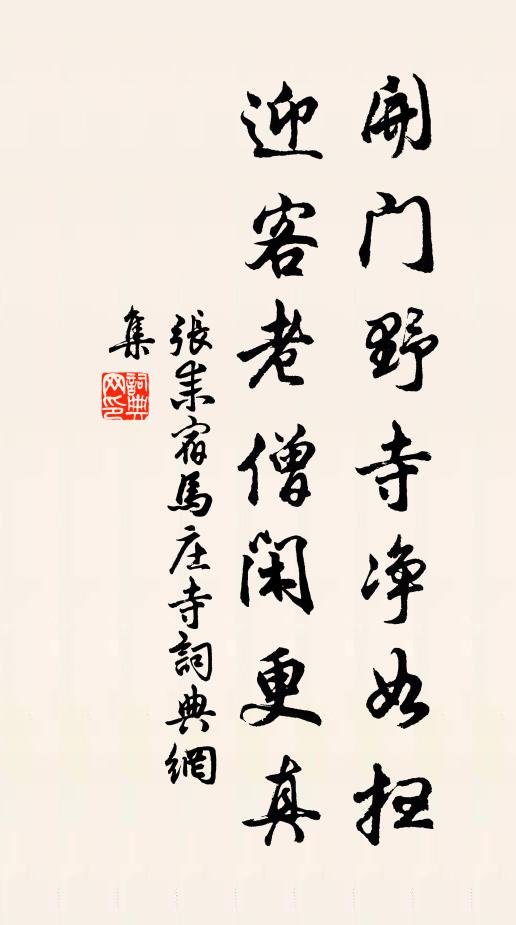 開门野寺净如扫
迎客老僧閑更真
張耒宿馬庄寺詞典網
集
詞典
网印